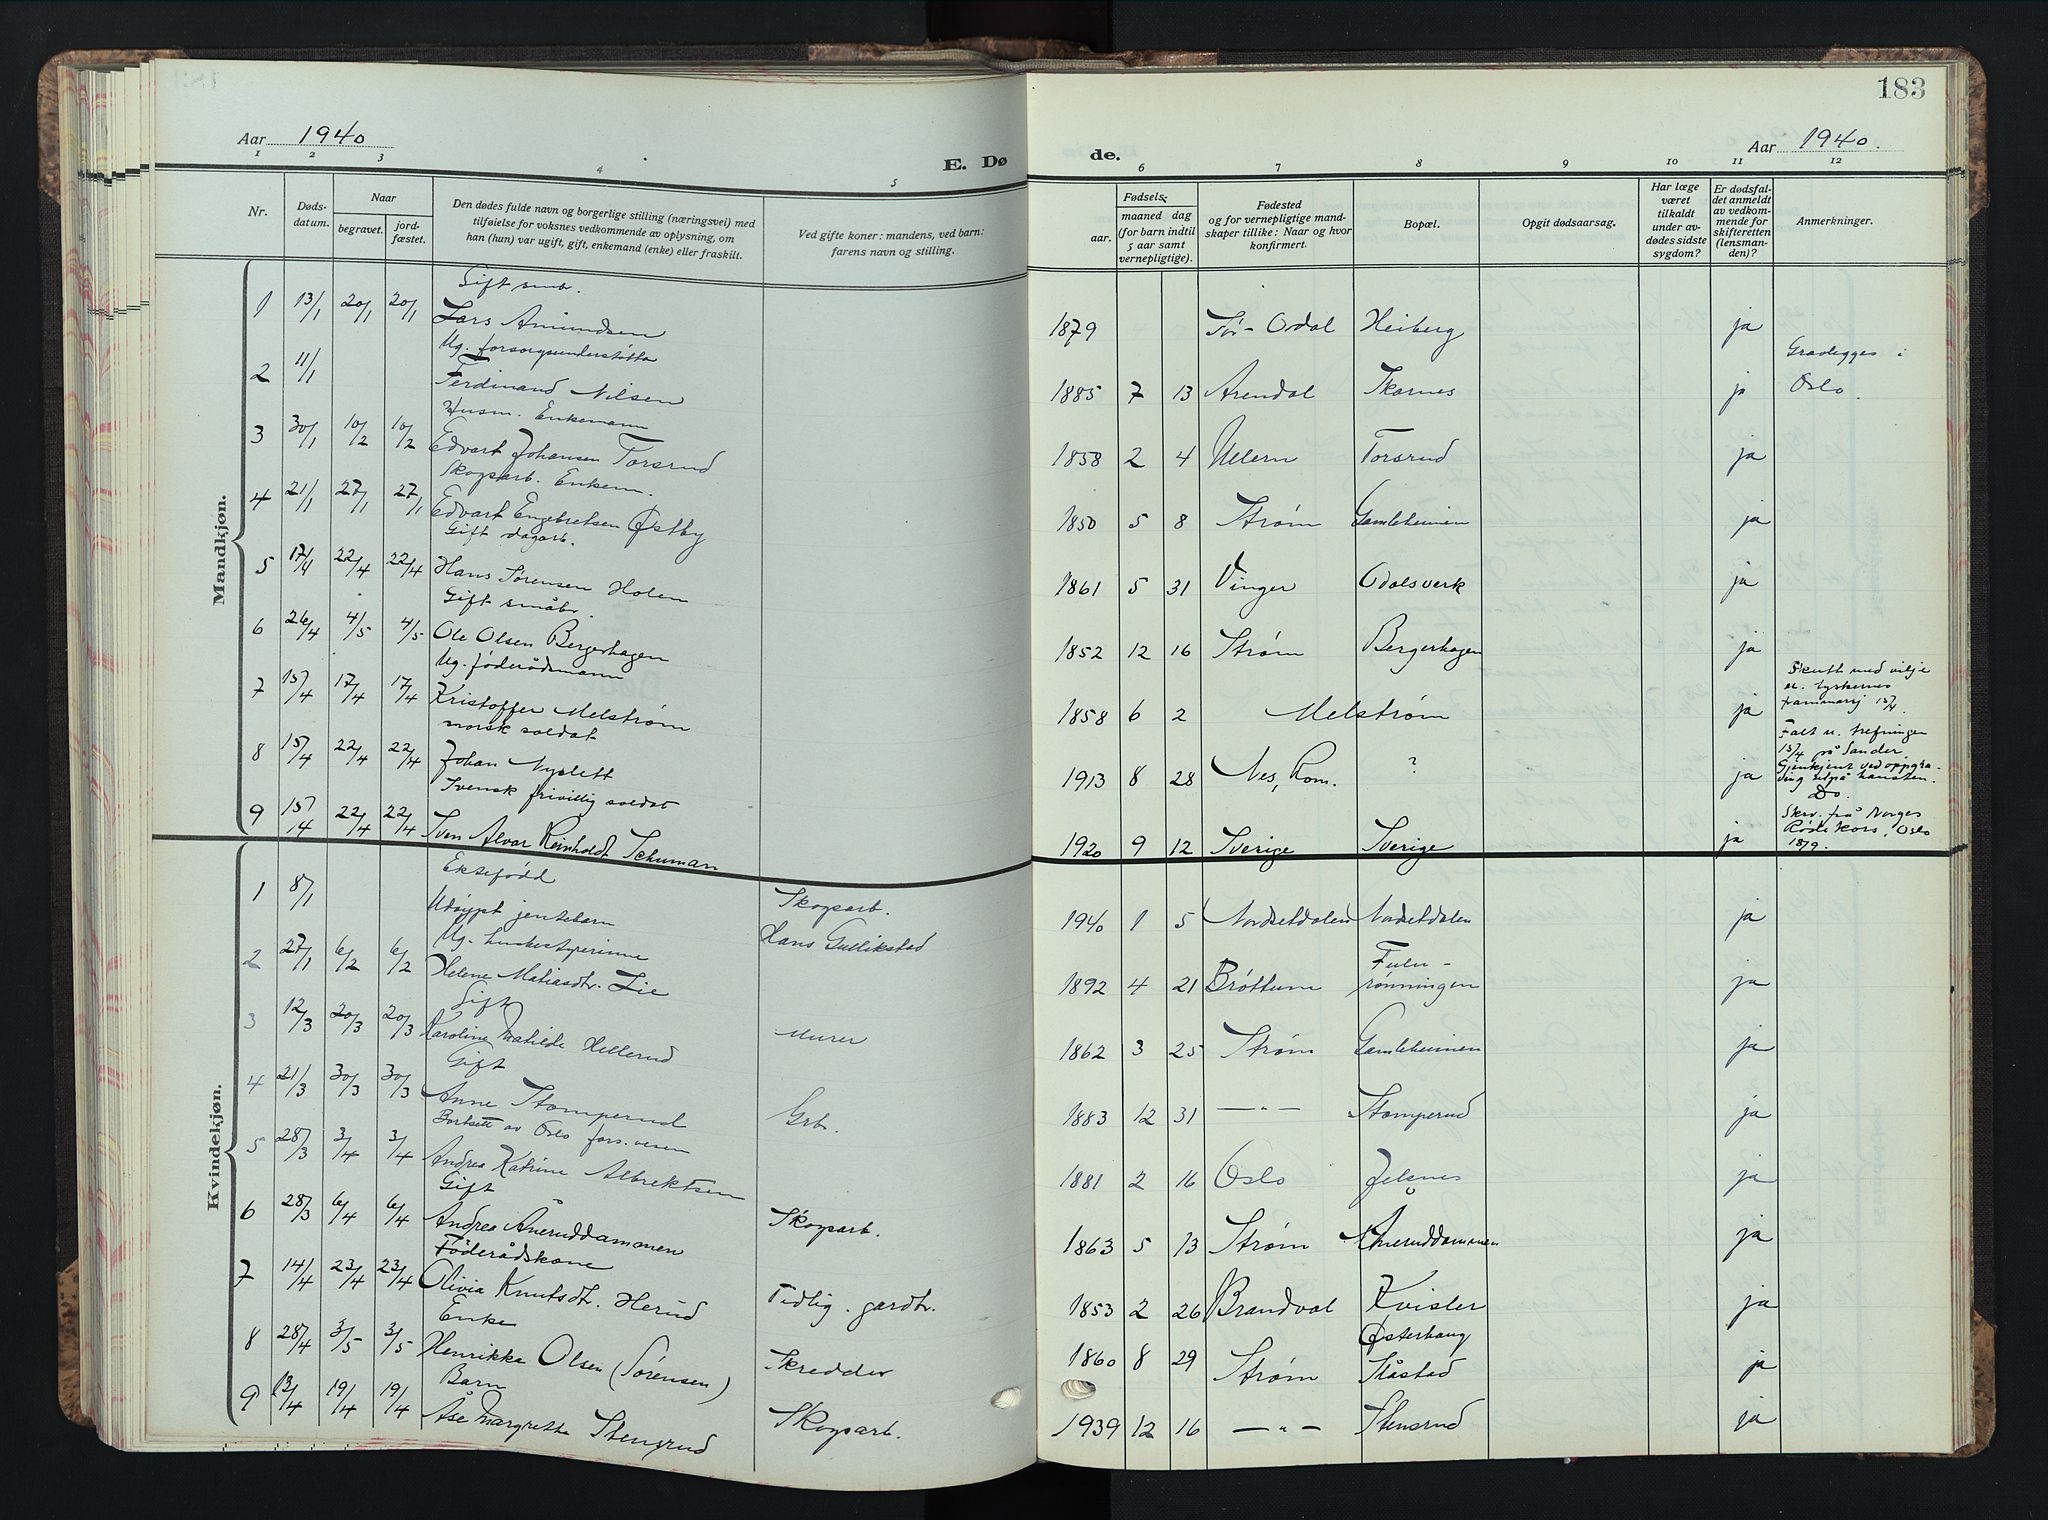 183
Aar 1940
E. Dø
de.
Aar 1940.
1 2 3 4 5 6 7 8 9 10 11 12
Nr.
Døds-
datum.
Naar
begravet.
jord-
fæstet.
Den dødes fulde navn og borgerlige stilling (næringsvei) med
tilføielse for voksnes vedkommende av oplysning, om
han (hun) var ugift, gift, enkemand (enke) eller fraskilt.
Ved gifte koner: mandens, ved barn:
farens navn og stilling.
Fødsels-
aar.
maaned dag
(for barn indtil
5 aar samt
vernepligtige).
Fødested
og for vernepligtige mand-
skaper tillike: Naar og hvor
konfirmert.
Bopæl.
Opgit dødsaarsag.
Har læge
været
tilkaldt
under av-
dødes sidste
sygdom?
Er dødsfal-
det anmeldt
av vedkom-
mende for
skifteretten
(lensman-
den)?
Anmerkninger.
Mandkjøn.
Gift smb.
1 13/1 20/1 20/1 Lars Amundsen 1879 Sør-Odal Heiberg ja
Ug. forsorgsunderstøtta
2 11/1 Ferdinand Nilsen 1885 7 13 Arendal Skarnes ja Gravlegges i
Oslo.
Husm. Enkemann
3 30/1 10/2 10/2 Edvart Johansen Torsrud 1858 2 4 Ullern Torsrud ja
Skogsarb. Enkem.
4 21/1 27/1 27/1 Edvart Engebretsen Østby 1850 5 8 Strøm Gamleheimen ja
Gift dagarb.
5 17/4 22/4 22/4 Hans Sørensen Holen 1861 5 31 Vinger Odalsverk ja
Gift småbr.
6 26/4 4/5 4/5 Ole Olsen Bergerhagen 1852 12 16 Strøm Bergerhagen ja
Ug. føderådsmann
7 15/4 17/4 17/4 Kristoffer Melstrøm 1858 6 2 Melstrøm ja Skutt med vilje
av tyskernes
frammarsj 15/4.
norsk soldat
8 15/4 22/4 22/4 Johan Nyslett 1913 8 28 Nes, Rom. ? ja Falt u. trefningen
15/4 på Sander
Gjenkjent ved oppgra-
ving
Svensk frivillig soldat
9 15/4 22/4 22/4 Sven Alvar Reinholdt Schuman 1920 9 12 Sverige Sverige ja Do.
Skriv. frå Norges
Røde Kors, Oslo
1879.
Kvindekjøn.
Ektefødd
1 8/1 Udøypt jentebarn Skogsarb.
Hans Gullikstad 1940 1 5 Nordsetdalen Nordsetdalen ja
Ug. husbestyrerinne
2 27/1 6/2 6/2 Helene Matiasdtr. Lie 1892 4 21 Brøttum Fulu-
rønningen ja
Gift
3 12/3 20/3 20/3 Karoline Matilde Hellerud Murer 1862 3 25 Strøm Gamleheimen ja
Gift
4 21/3 30/3 30/3 Anne Stomperud Grb. 1883 12 31 —"— Stomperud ja
Bortsatt av Oslo fors.vesen
5 28/3 3/4 3/4 Andrea Katrine Albrektsen 1881 2 16 Oslo Jelsnes ja
Gift
6 28/3 6/4 6/4 Andrea Åneruddammen Skogsarb. 1863 5 13 Strøm Åneruddammen ja
Føderådskone
7 14/4 23/4 23/4 Olivia Knutsdtr. Herud Tidlig. gardbr. 1853 2 26 Brandval Kvisler ja
Enke
8 28/4 3/5 3/5 Henrikke Olsen (Sørensen) Skredder 1860 8 29 Strøm Østerhaug
Skåstad ja
Barn
9 13/4 19/4 19/4 Åse Margrethe Stensrud Skogsarb. 1939 12 16 —"— Stensrud ja